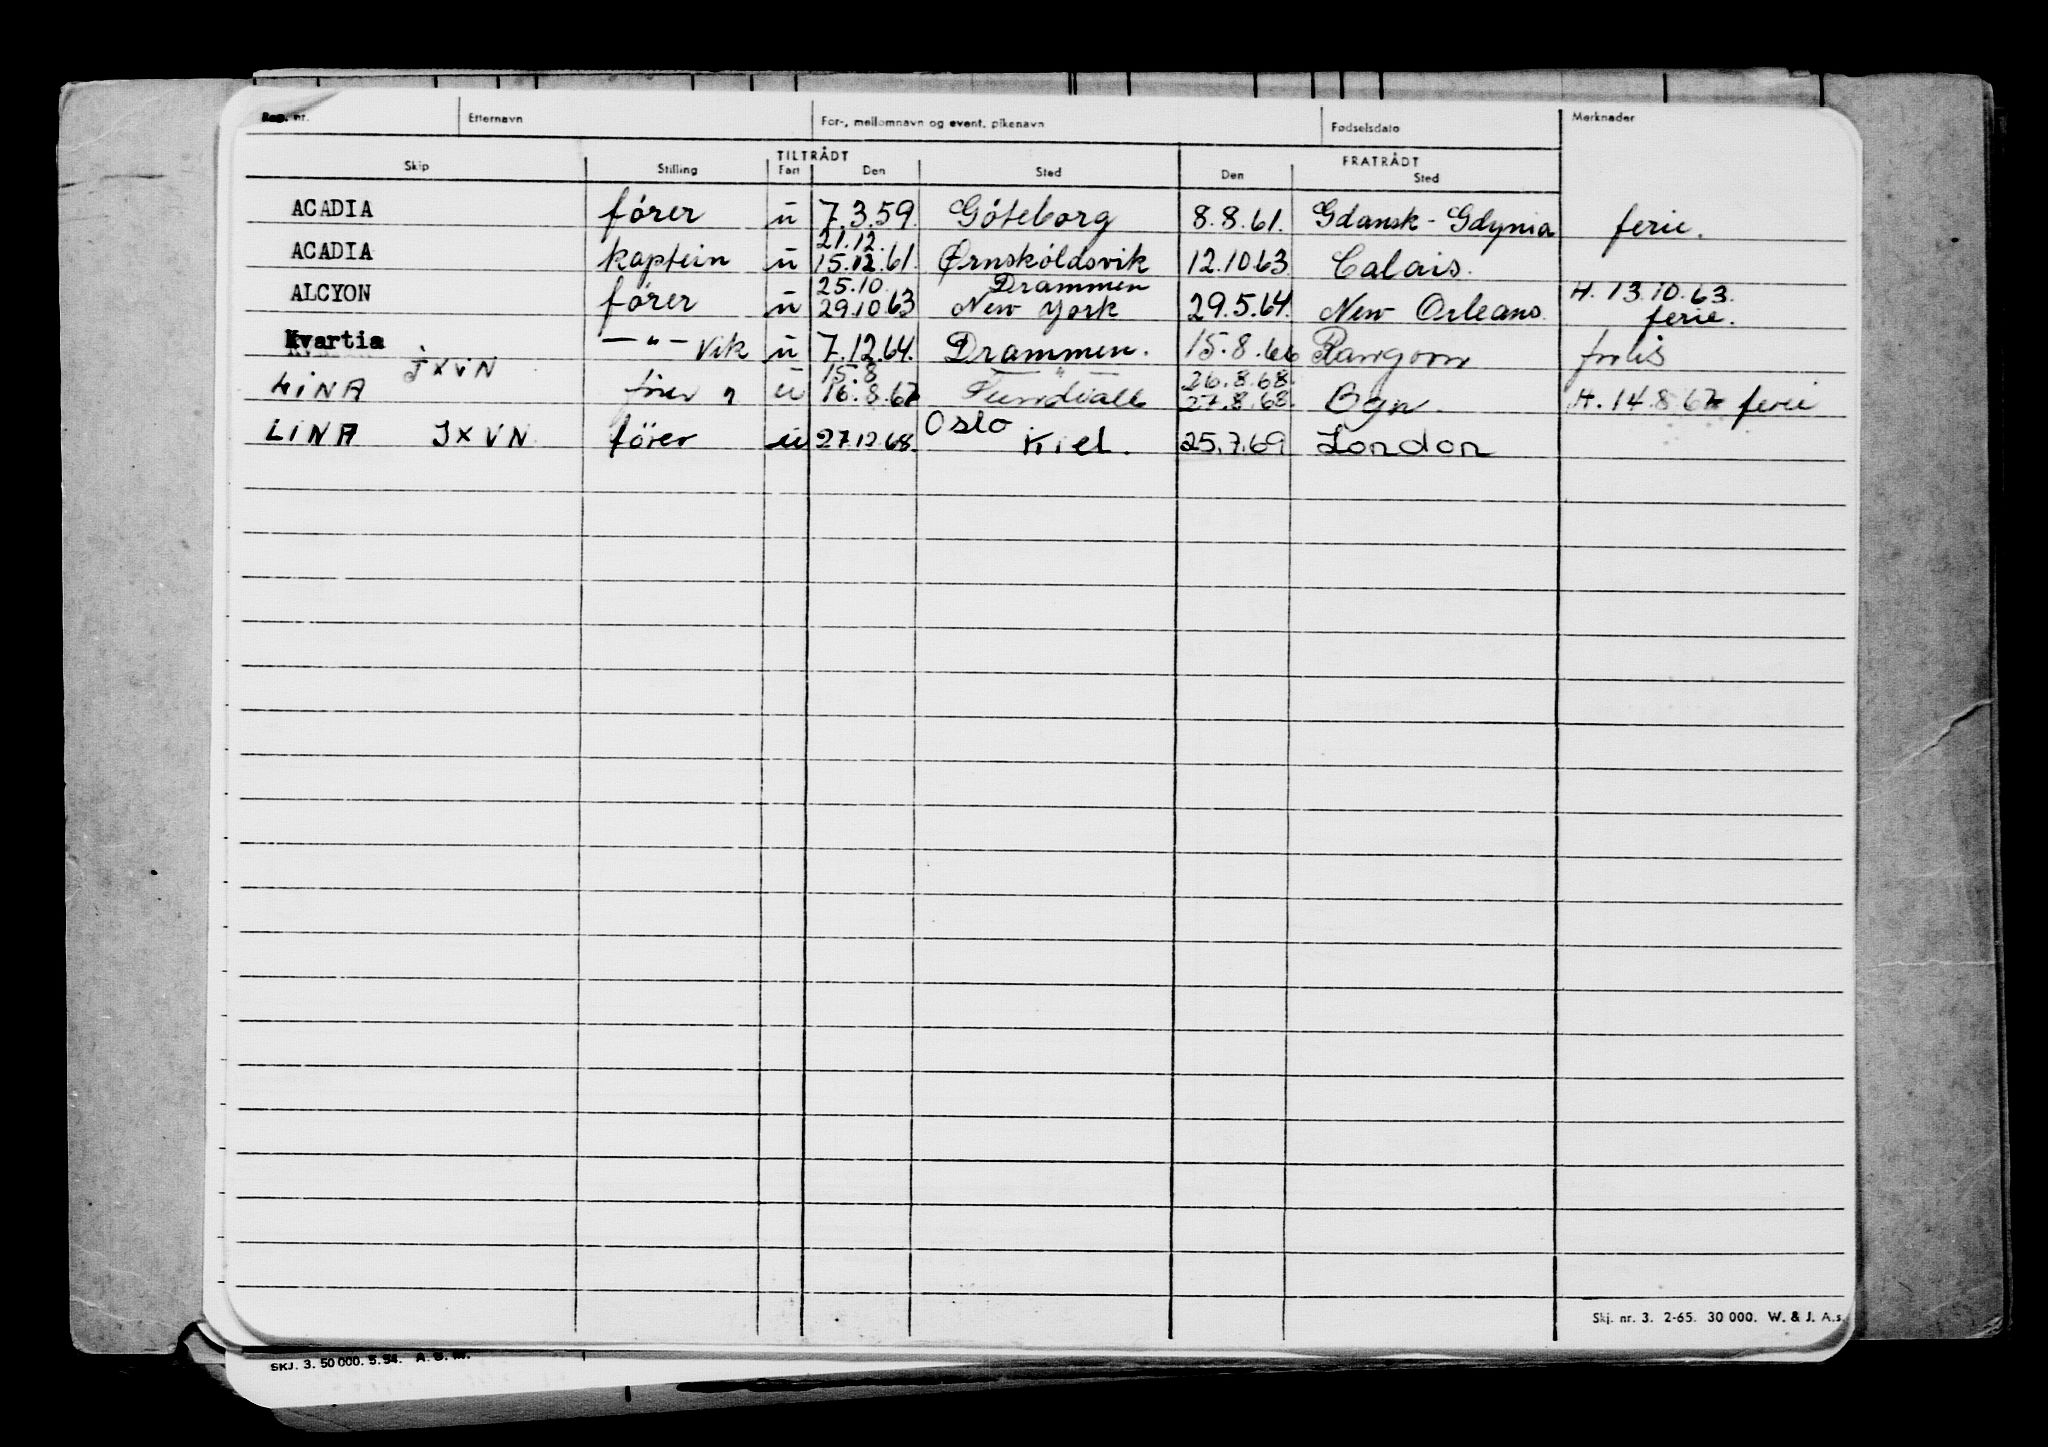 Reg. nr. Etternavn For-, mellomnavn og event. pikenavn Fødselsdato Merknader
TILTRÅDT FRATRÅDT
Skip Stilling Fart Den Sted Den Sted
ACADIA fører u 7.3.59. Göteborg 8.8.61. Gdansk-Gdynia ferie.
21.12.
ACADIA kaptein u 15.12.61. Ørnsköldsvik 12.10.63 Calais.
25.10. Drammen H. 13.10.63.
ALCYON fører u 29.10.63 New York 29.5.64. New Orleans ferie.
Kvartia — " — vik u 7.12.64. Drammen. 15.8.66 Rangoon
JXVN 15.8 — " — 26.8.68.
LINA fører u 16.8.67 27.8.68. Bgn. H. 14.8.67 ferie
Oslo
LINA JXVN fører u 27.12.68. Kiel. 25.7.69 London
Skj. nr. 3. 2-65. 30 000. W. & J. A.s.
SKJ. 3. 50 000. 5. 54.